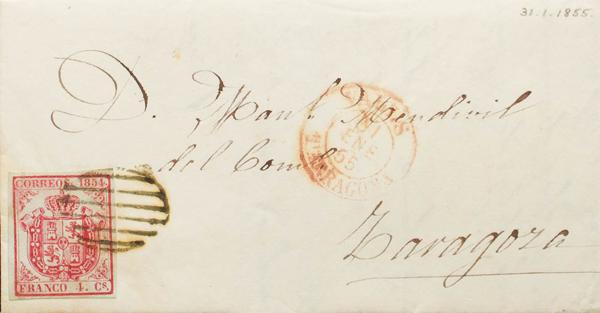 31.1.1855.
D. Man.l Mendivil
del Com.o
Zaragoza
31
ENE
55
ARAGONA
CORREOS. 1854.
FRANCO 4. Cs.